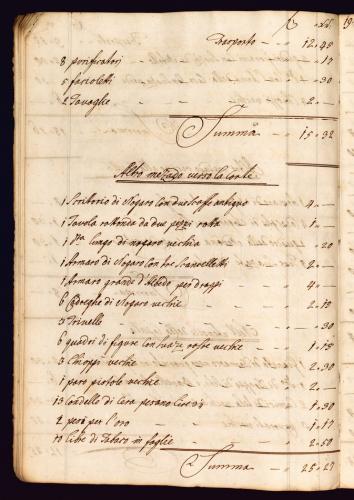 Trasporto - - 12.45
8 purificatori - - -.17
5 fazoletti - - -.30
2 Tovaglie - - 2.-
Summa - 15.32
Altro mezago verso la Corte
1 Scrittorio di Nogaro con due antiquo - 4.-
1 Tavola rottonda da due pezzi rotta - 1.-
1 longa di nogaro vechia - -.20
1 Armaro di Nogaro con tre Scanceletti - 2.-
1 Armaro grande d'Albedo per drappi - 4.-
6 Cadreghe di Nogaro vechie - - 2.18
3 Trivelle - - -.30
6 quadri di figure con vechie - 1.15
3 vechie - - 2.30
1 paro pistole vechie - - 2.-
13 Candelle di Cera pesano - 1.30
2 pesi per l'oro - - 1.17
10 Libre di Tabaco in foglie - - 2.50
Summa - 25.27